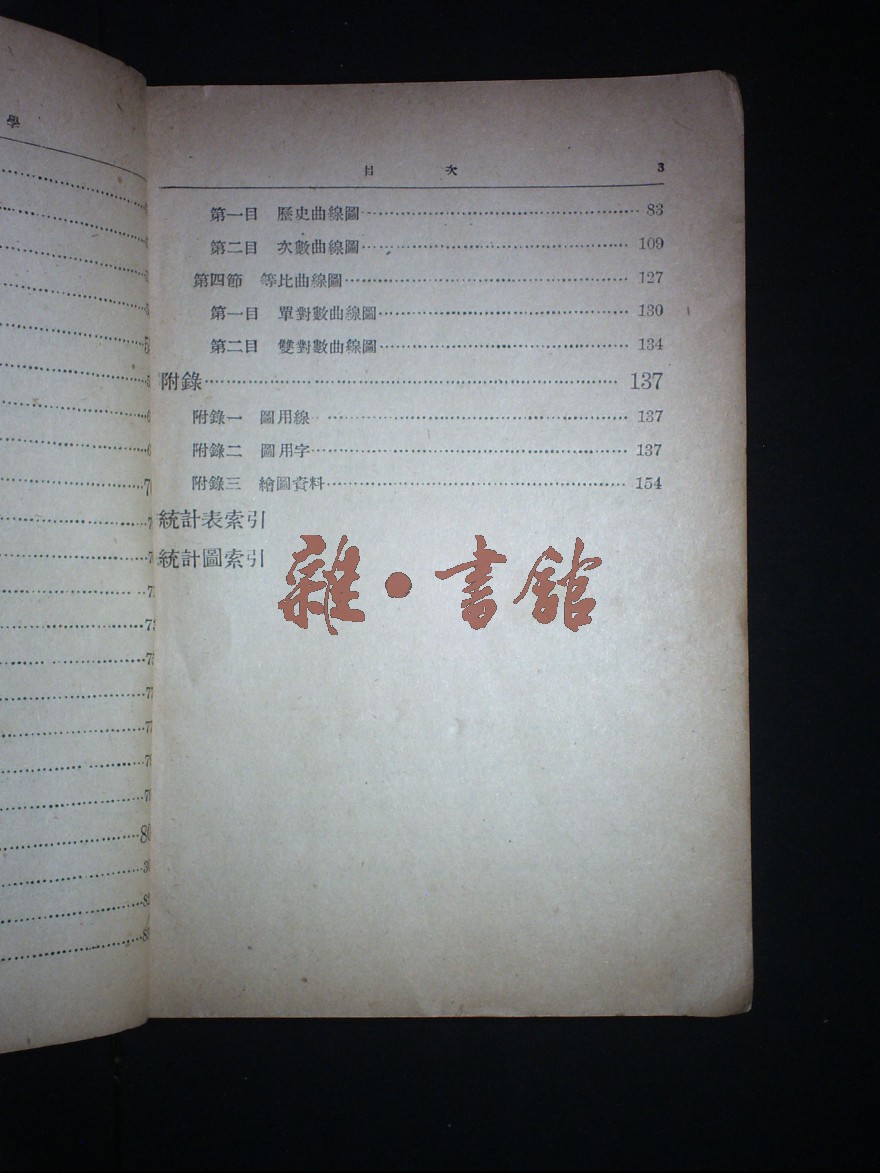 學
目 次 3
第一目 歷史曲線圖 83
第二目 次數曲線圖 109
第四節 等比曲線圖 127
第一目 單對數曲線圖 130
第二目 雙對數曲線圖 134
附錄 137
附錄一 圖用線 137
附錄二 圖用字 137
附錄三 繪圖資料 154
統計表索引
統計圖索引
雜·書館